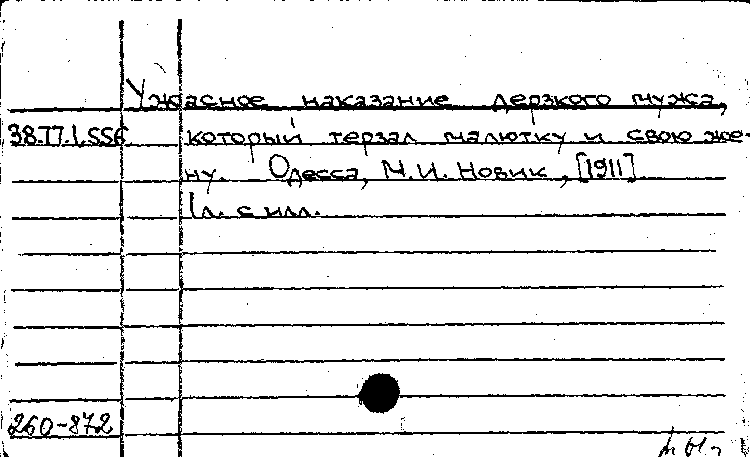 Ужасное наказание дерзкого мужа,
38.77.1.556 который терзал малютку и свою же-
ну. Одесса, М.И. Новик, [1911]
1л. с илл.
260-872